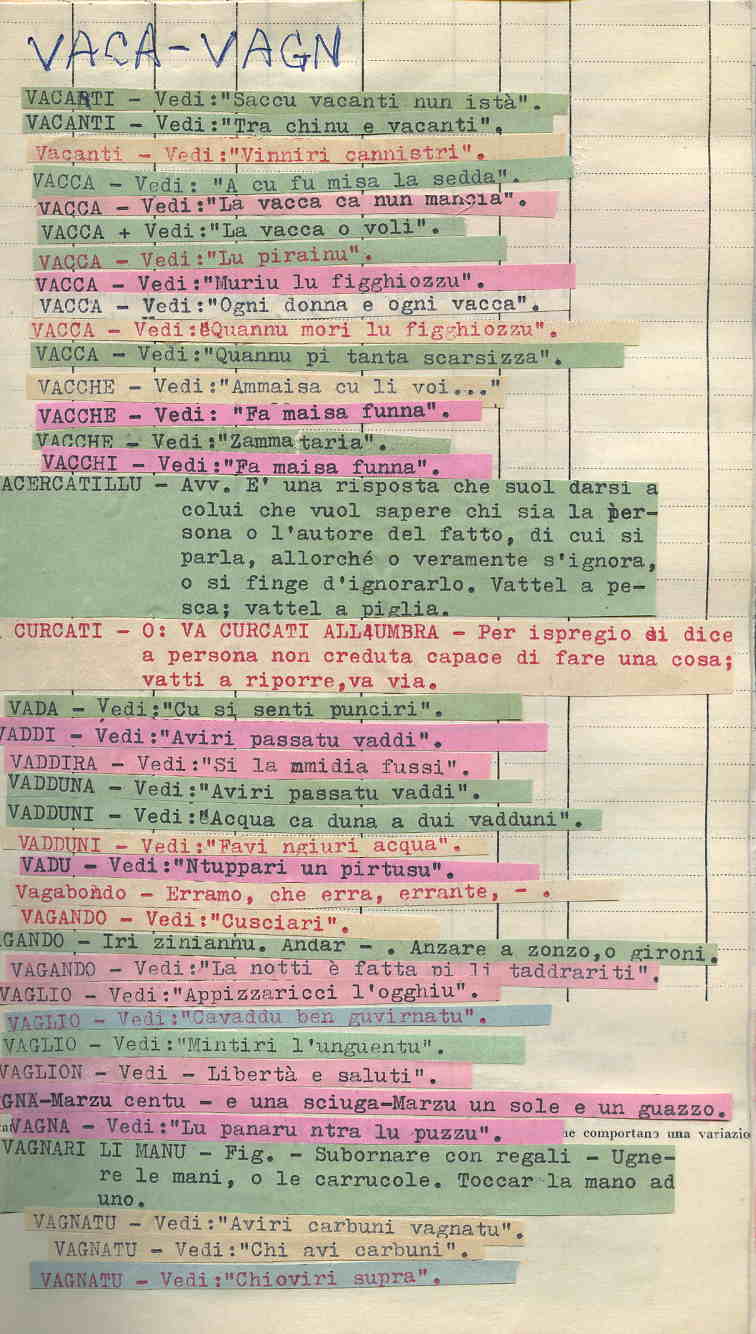 VACA-VAGN
VACANTI - Vedi:"Saccu vacanti nun istà".
VACANTI - Vedi:"Tra chinu e vacanti".
Vacanti - Vedi:"Vinniri cannistri".
VACCA - Vedi: "A cu fu misa la sedda".
VACCA - Vedi:"La vacca ca nun mancia".
VACCA + Vedi:"La vacca o voli".
VACCA - Vedi:"Lu pirainu".
VACCA - Vedi:"Muriu lu figghiozzu".
VACCA - Vedi:"Ogni donna e ogni vacca".
VACCA - Vedi:"Quannu mori lu figghiozzu".
VACCA - Vedi:"Quannu pi tanta scarsizza".
VACCHE - Vedi:"Ammaisa cu li voi..."
VACCHE - Vedi: "Fa maisa funna".
VACCHE - Vedi:"Zamma taria".
VACCHI - Vedi:"Fa maisa funna".
ACERCATILLU - Avv. E' una risposta che suol darsi a
colui che vuol sapere chi sia la per-
sona o l'autore del fatto, di cui si
parla, allorché o veramente s'ignora,
o si finge d'ignorarlo. Vattel a pe-
sca; vattel a piglia.
CURCATI - O: VA CURCATI ALL'UMBRA - Per ispregio si dice
a persona non creduta capace di fare una cosa;
vatti a riporre,va via.
VADA - Vedi:"Cu si senti punciri".
VADDI - Vedi:"Aviri passatu vaddi".
VADDIRA - Vedi:"Si la mmidia fussi".
VADDUNA - Vedi:"Aviri passatu vaddi".
VADDUNI - Vedi:"Acqua ca duna a dui vadduni".
VADDUNI - Vedi:"Favi ngiuri acqua".
VADU - Vedi:"Ntuppari un pirtusu".
Vagabondo - Erramo, che erra, errante, - .
VAGANDO - Vedi:"Cusciari".
GANDO - Iri ziniannu. Andar - . Anzare a zonzo,o gironi.
VAGANDO - Vedi:"La notti è fatta pi li taddrariti".
VAGLIO - Vedi:"Appizzaricci l'ogghiu".
VAGLIO - Vedi:"Cavaddu ben guvirnatu".
VAGLIO - Vedi:"Mintiri l'unguentu".
VAGLION - Vedi - Libertà e saluti".
GNA-Marzu centu - e una sciuga-Marzu un sole e un guazzo.
VAGNA - Vedi:"Lu panaru ntra lu puzzu". ne comportano una variazio
VAGNARI LI MANU - Fig. - Subornare con regali - Ugne-
re le mani, o le carrucole. Toccar la mano ad
uno.
VAGNATU - Vedi:"Aviri carbuni vagnatu".
VAGNATU - Vedi:"Chi avi carbuni".
VAGNATU - Vedi:"Chioviri supra".